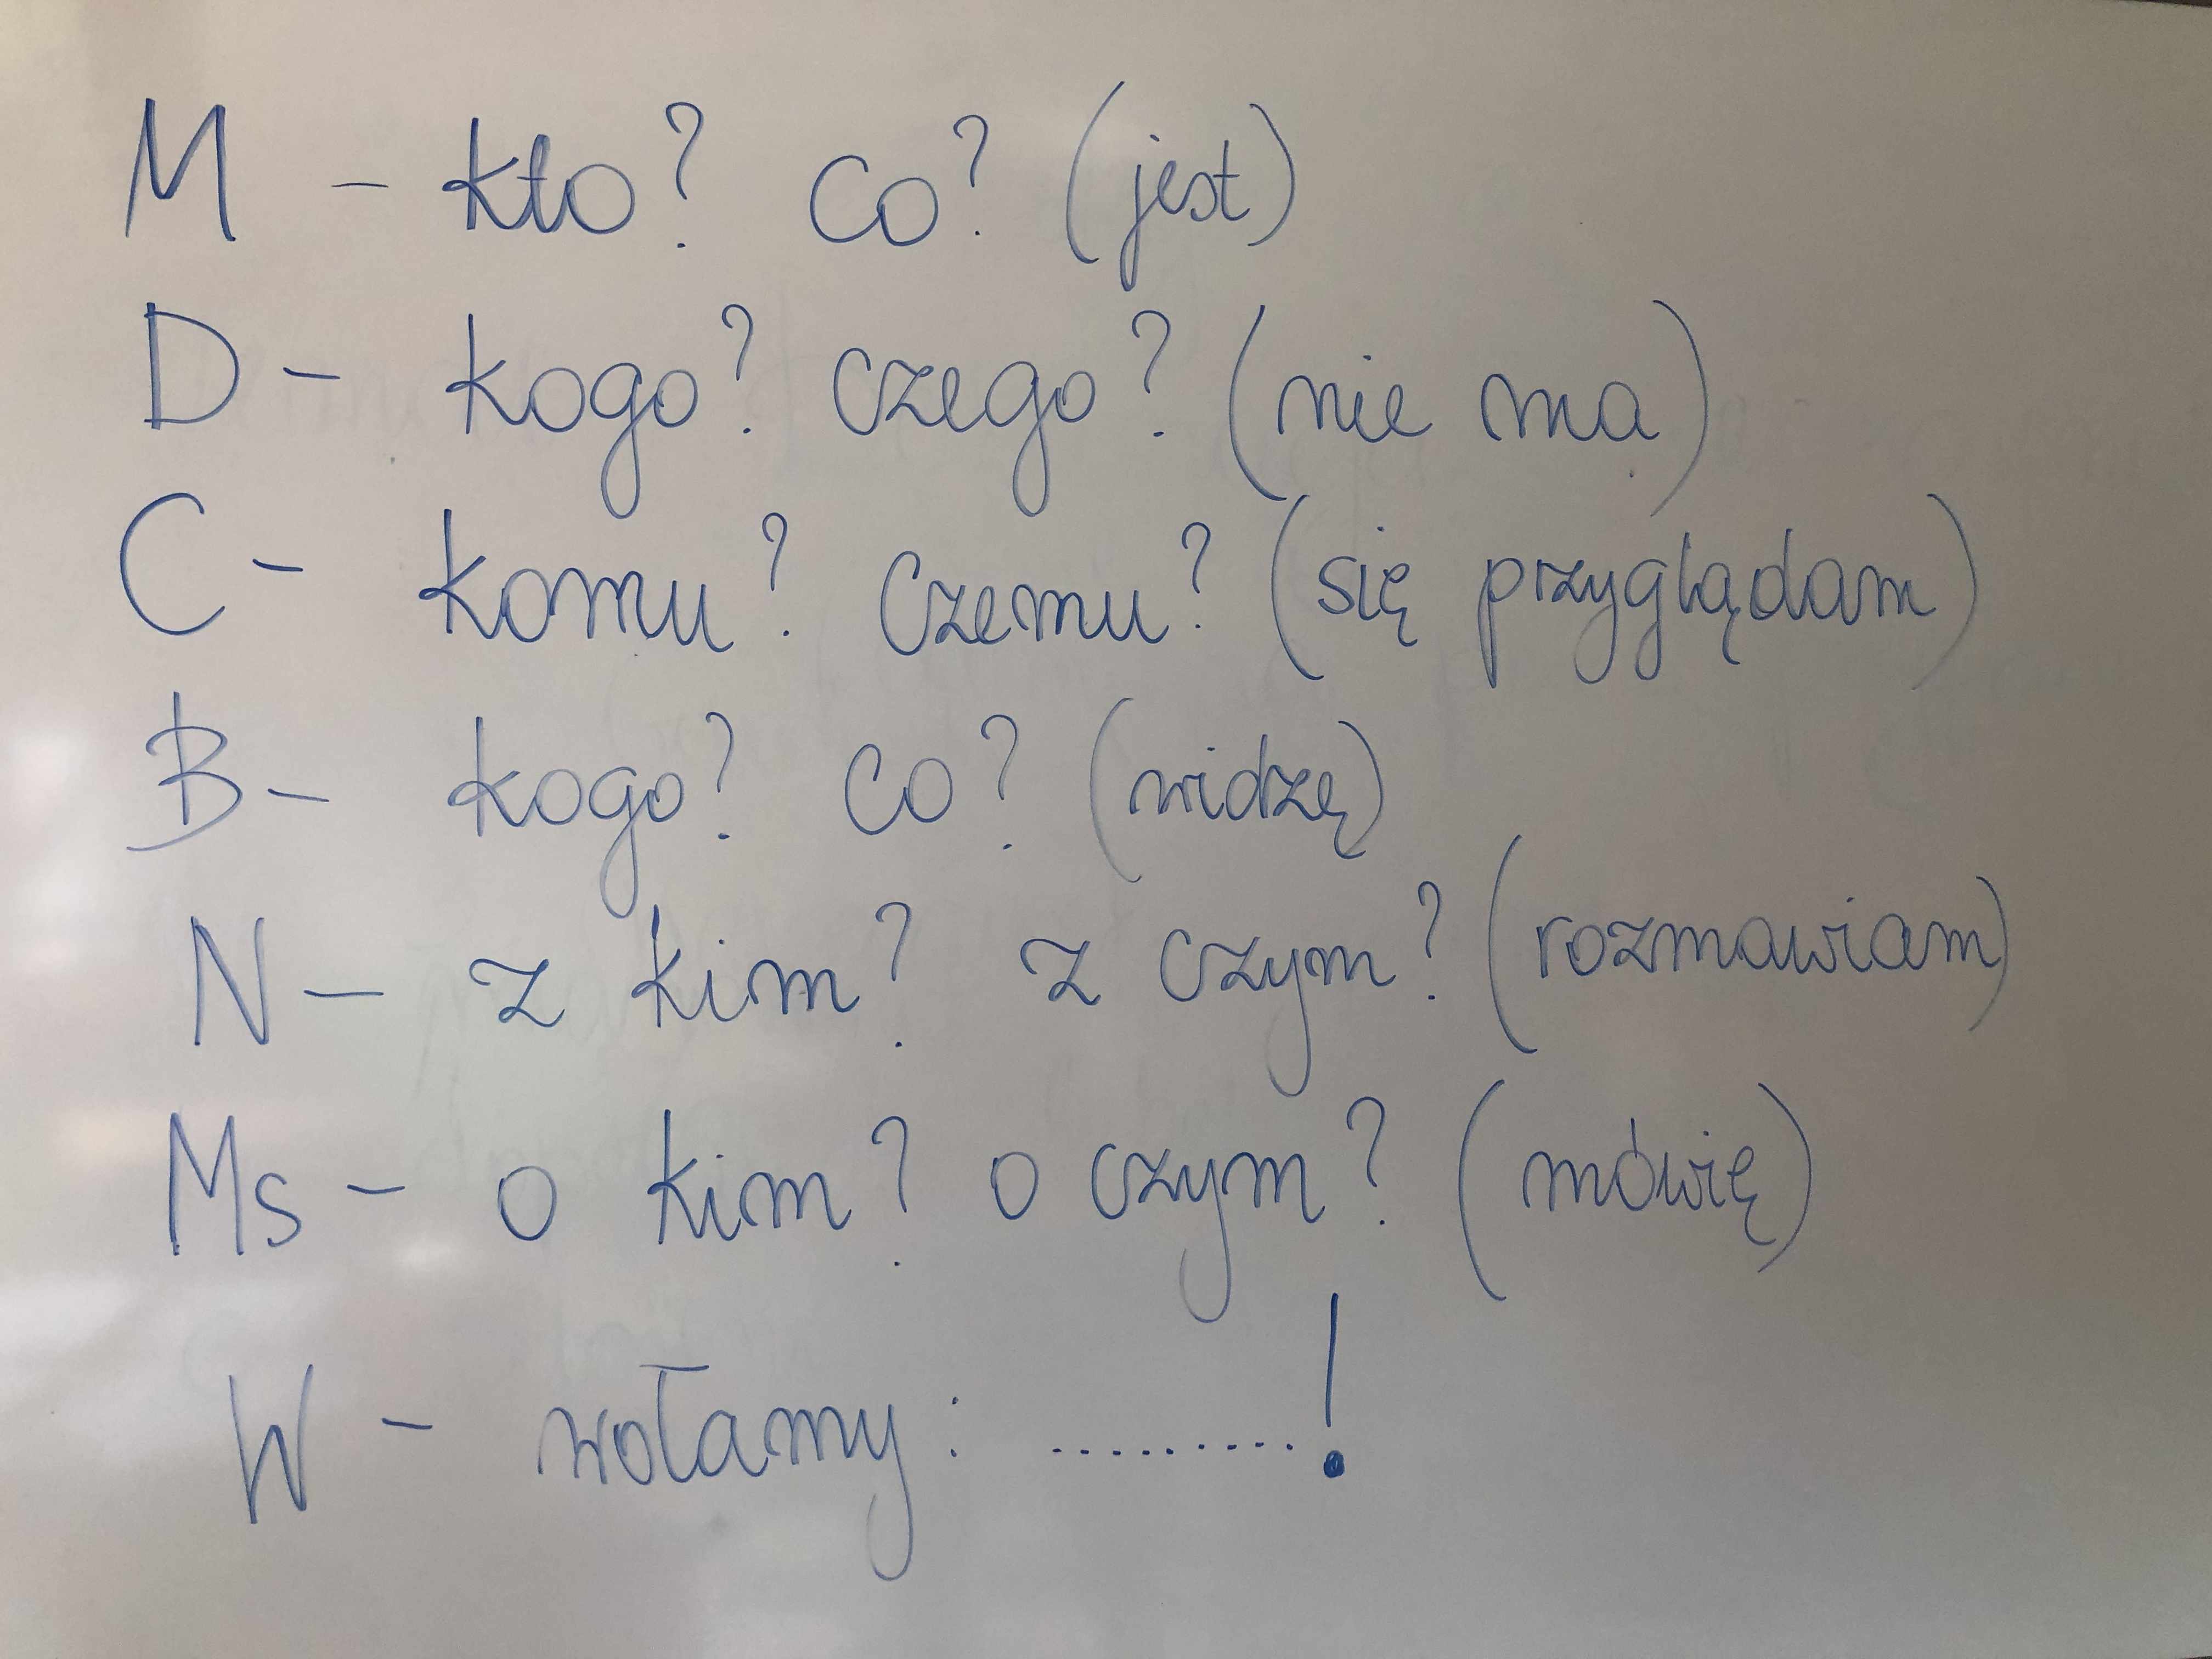 M - kto? co? (jest)
D - kogo? czego? (nie ma)
C - komu? czemu? (się przyglądam)
B - kogo? co? (widzę)
N - z kim? z czym? (rozmawiam)
Ms - o kim? o czym? (mówię)
W - wołamy: ..........!